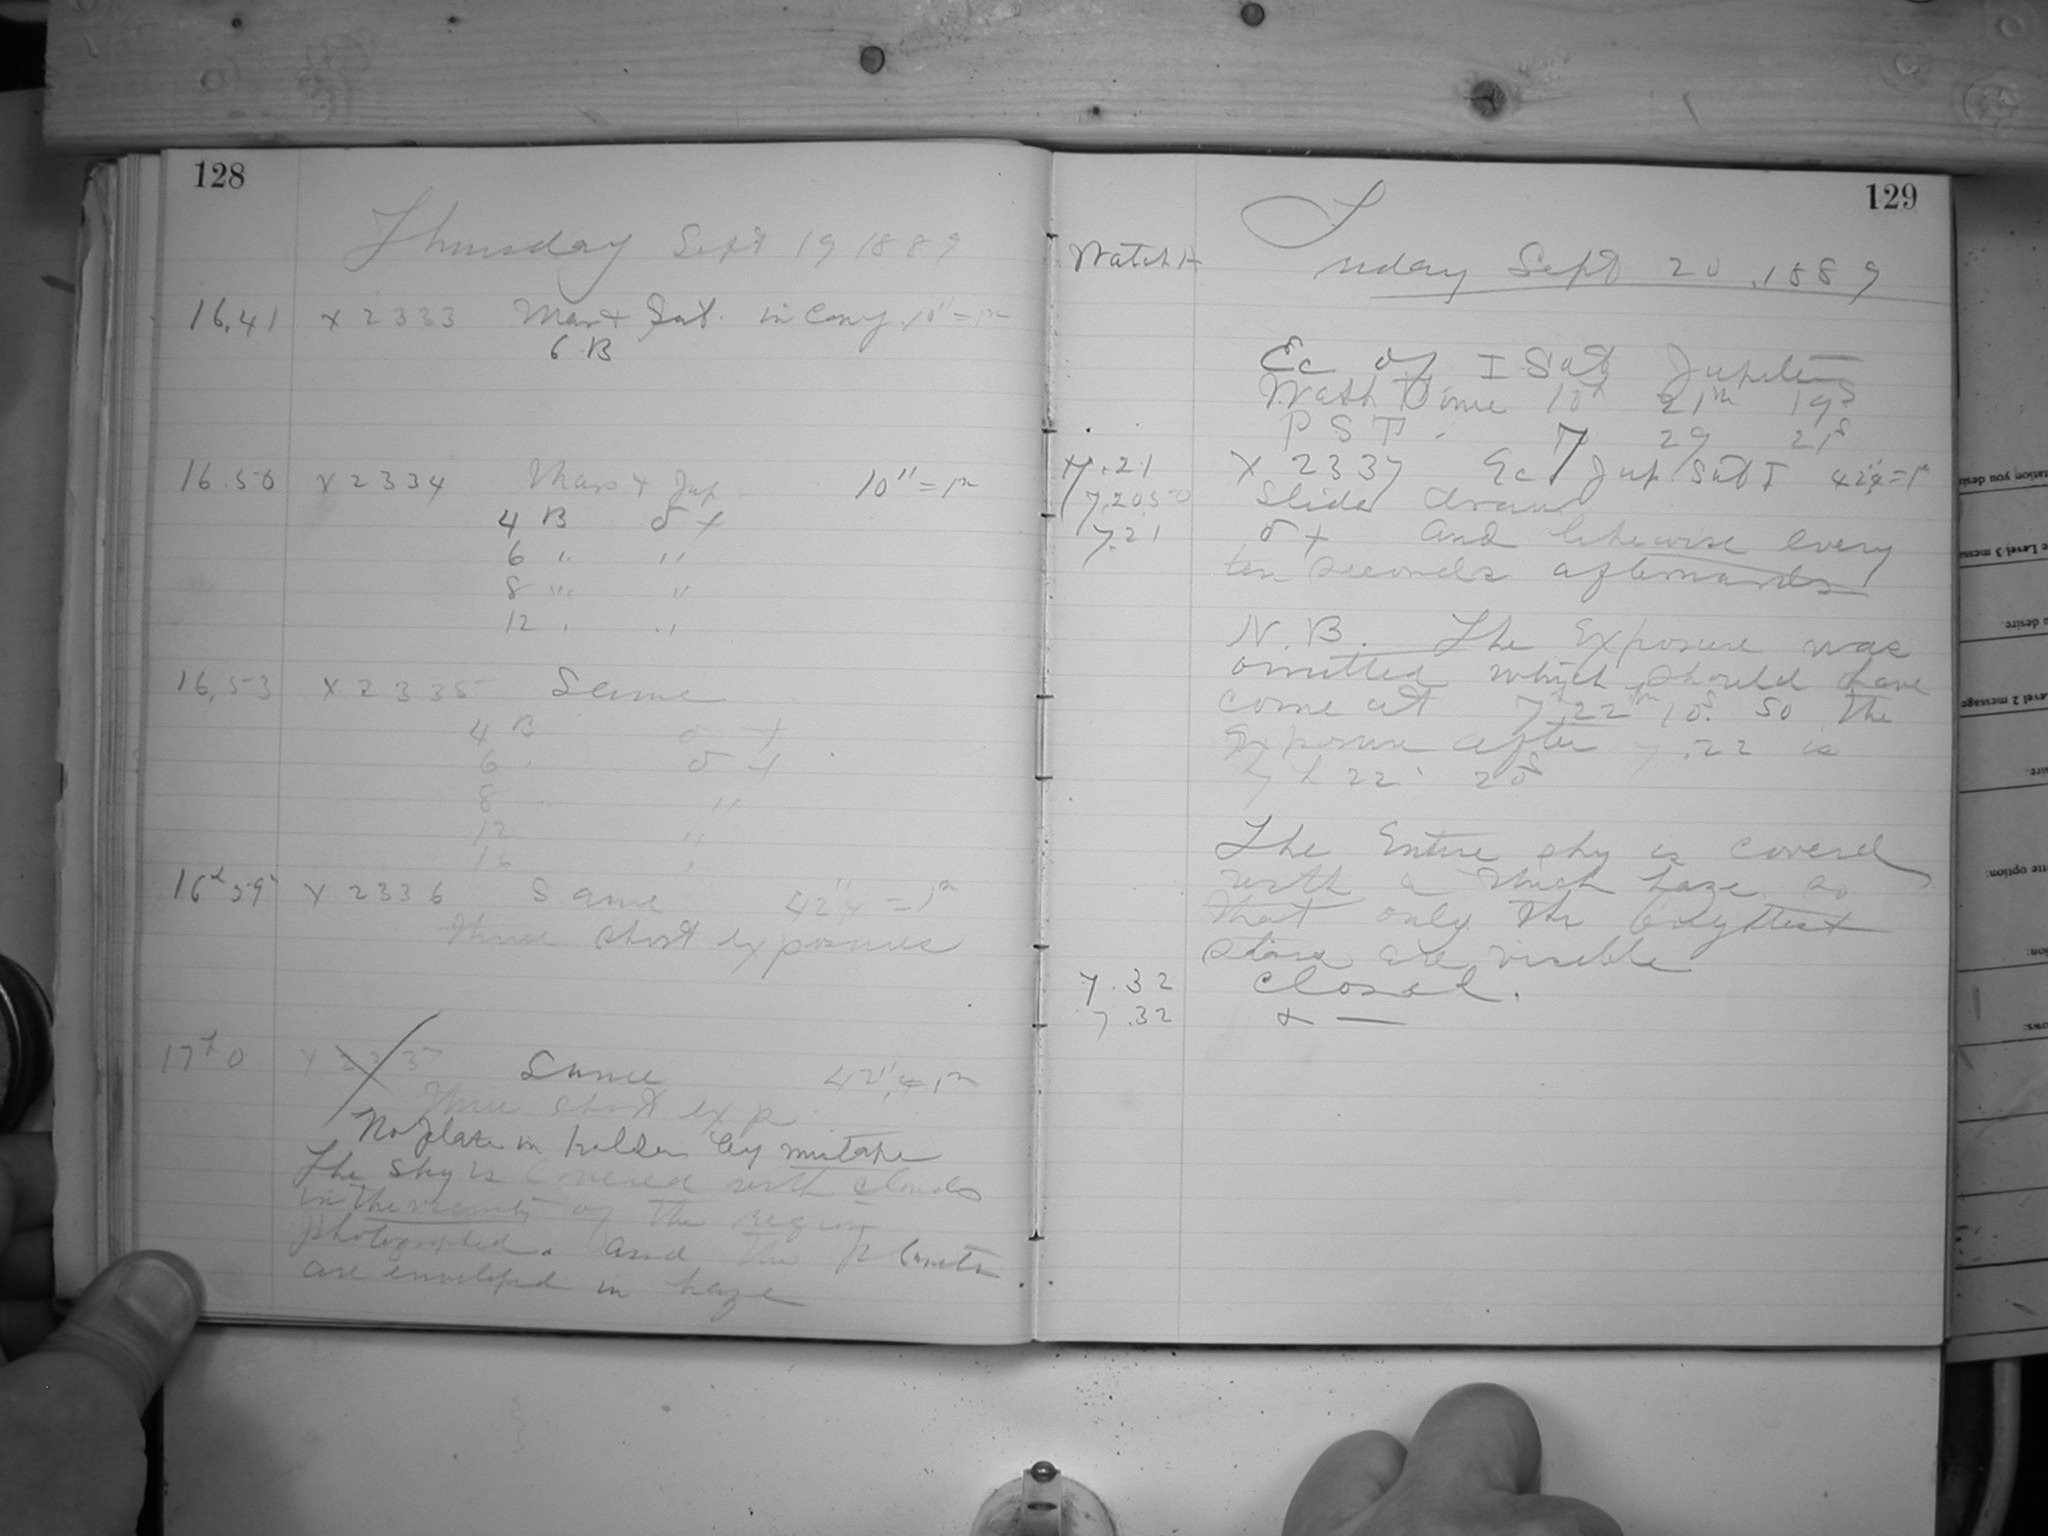 128
Thursday Sept 19 1889
16.41 X 2333 Mars + Sat. in Conj. 10" = 1m
6 B
16.50 X 2334 Mars + Jup 10" = 1m
4 B
6 " "
8 " "
12 " "
16.53 X 2335 Same
4 B
6 "
8 " "
12 "
16 "
16 59 X 2336 Same 42"4 = 1m
three short exposures
17 0 Same 42"4 = 1m
three short exp
No plate in holder by mistake
The sky is covered with clouds
in the vicinity of the region
photographed. and the planets
are enveloped in haze
129
Watch
Friday Sept 20 1889
Ec of I Sat Jupiter
Wash Time 10h 21m 19s
P S T. 7 29 21s
7.21 X 2337 Ec Jup Sat I 42"4 = 1m
7.20.50 Slide drawn
7.21 and likewise every
ten seconds afterwards
N.B. The Exposure was
omitted which should have
come at 7h 22m 10s. So the
Exposure after 7.22 is
7 22 20s
The Entire sky is covered
with a thick haze so
that only the brightest
stars are visible
7.32 Closed.
7.32